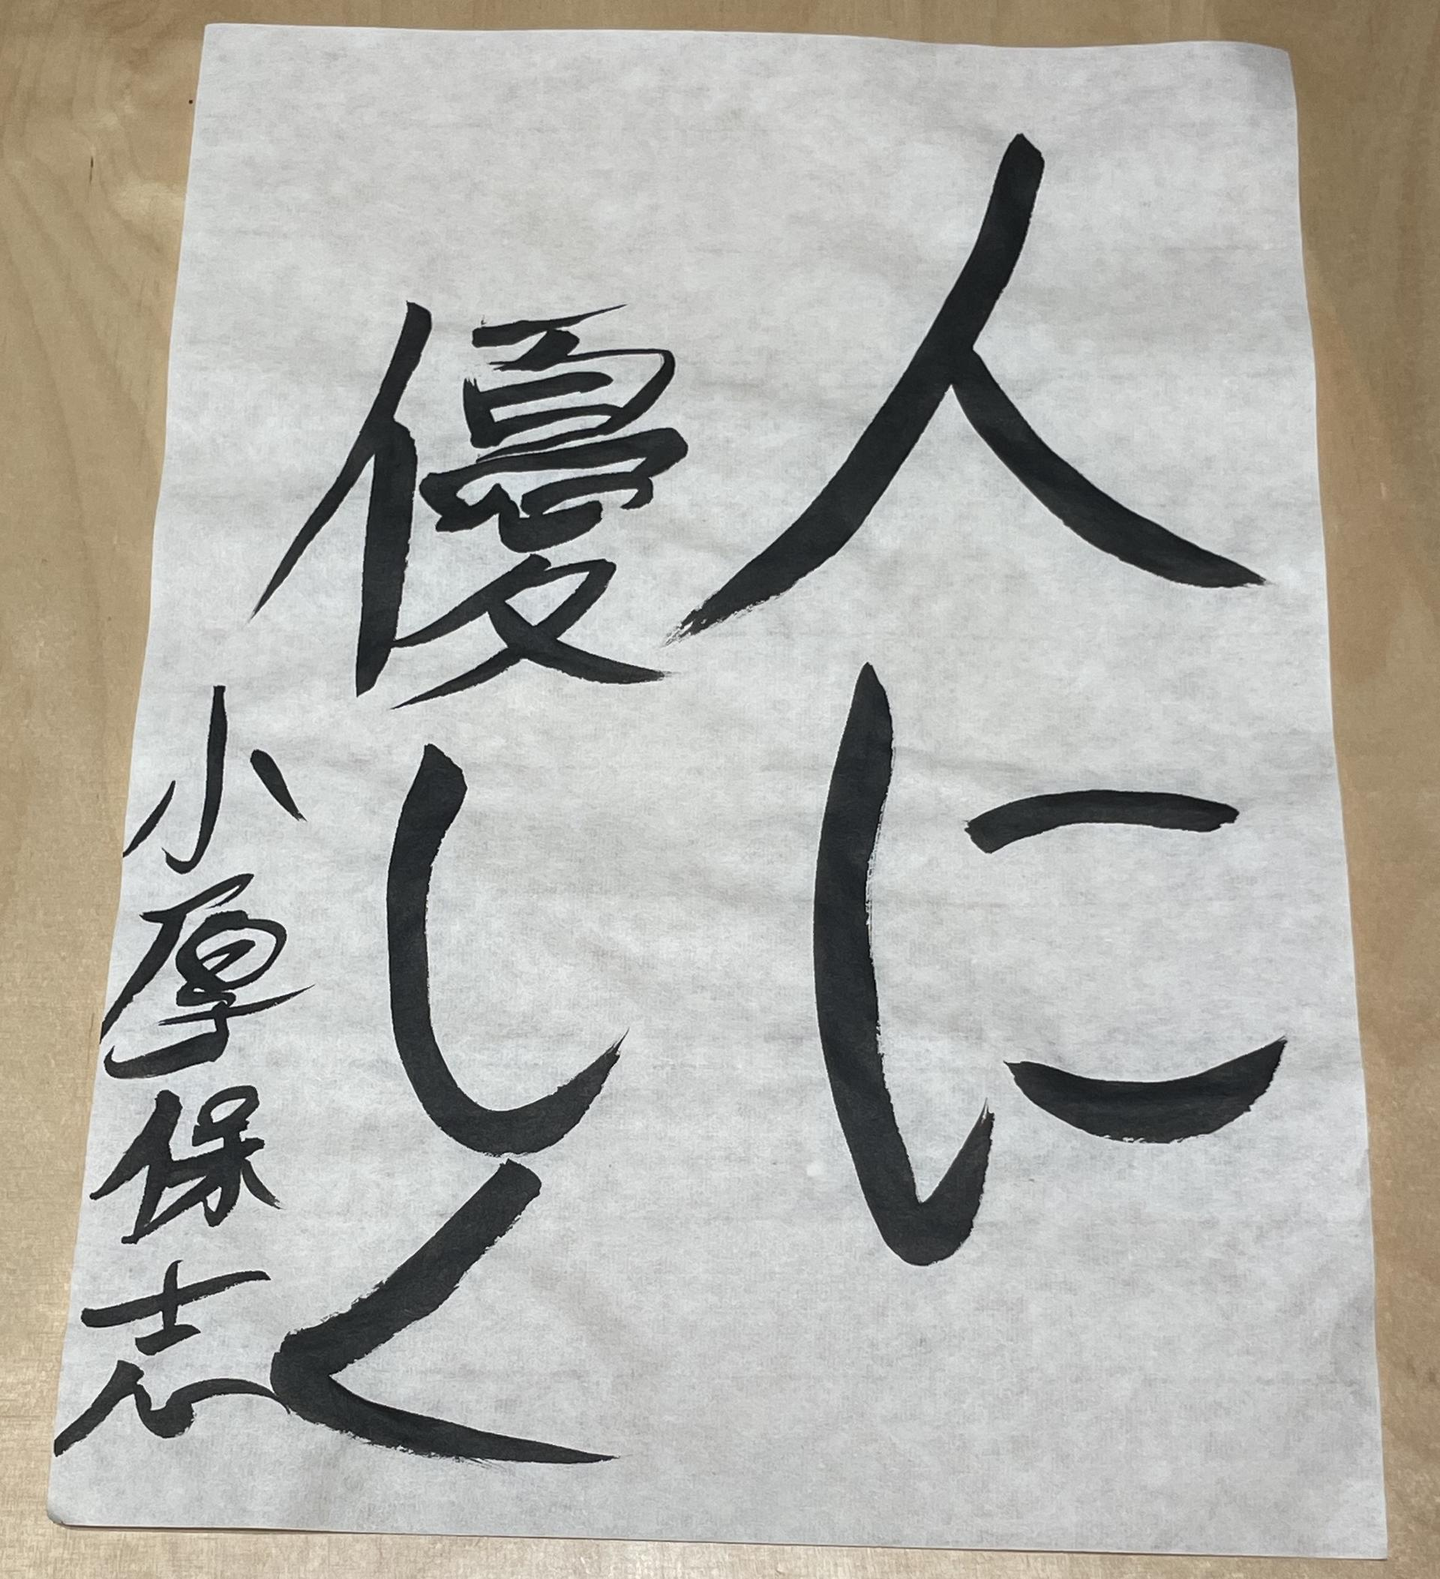 人に
優しく
小厚保志